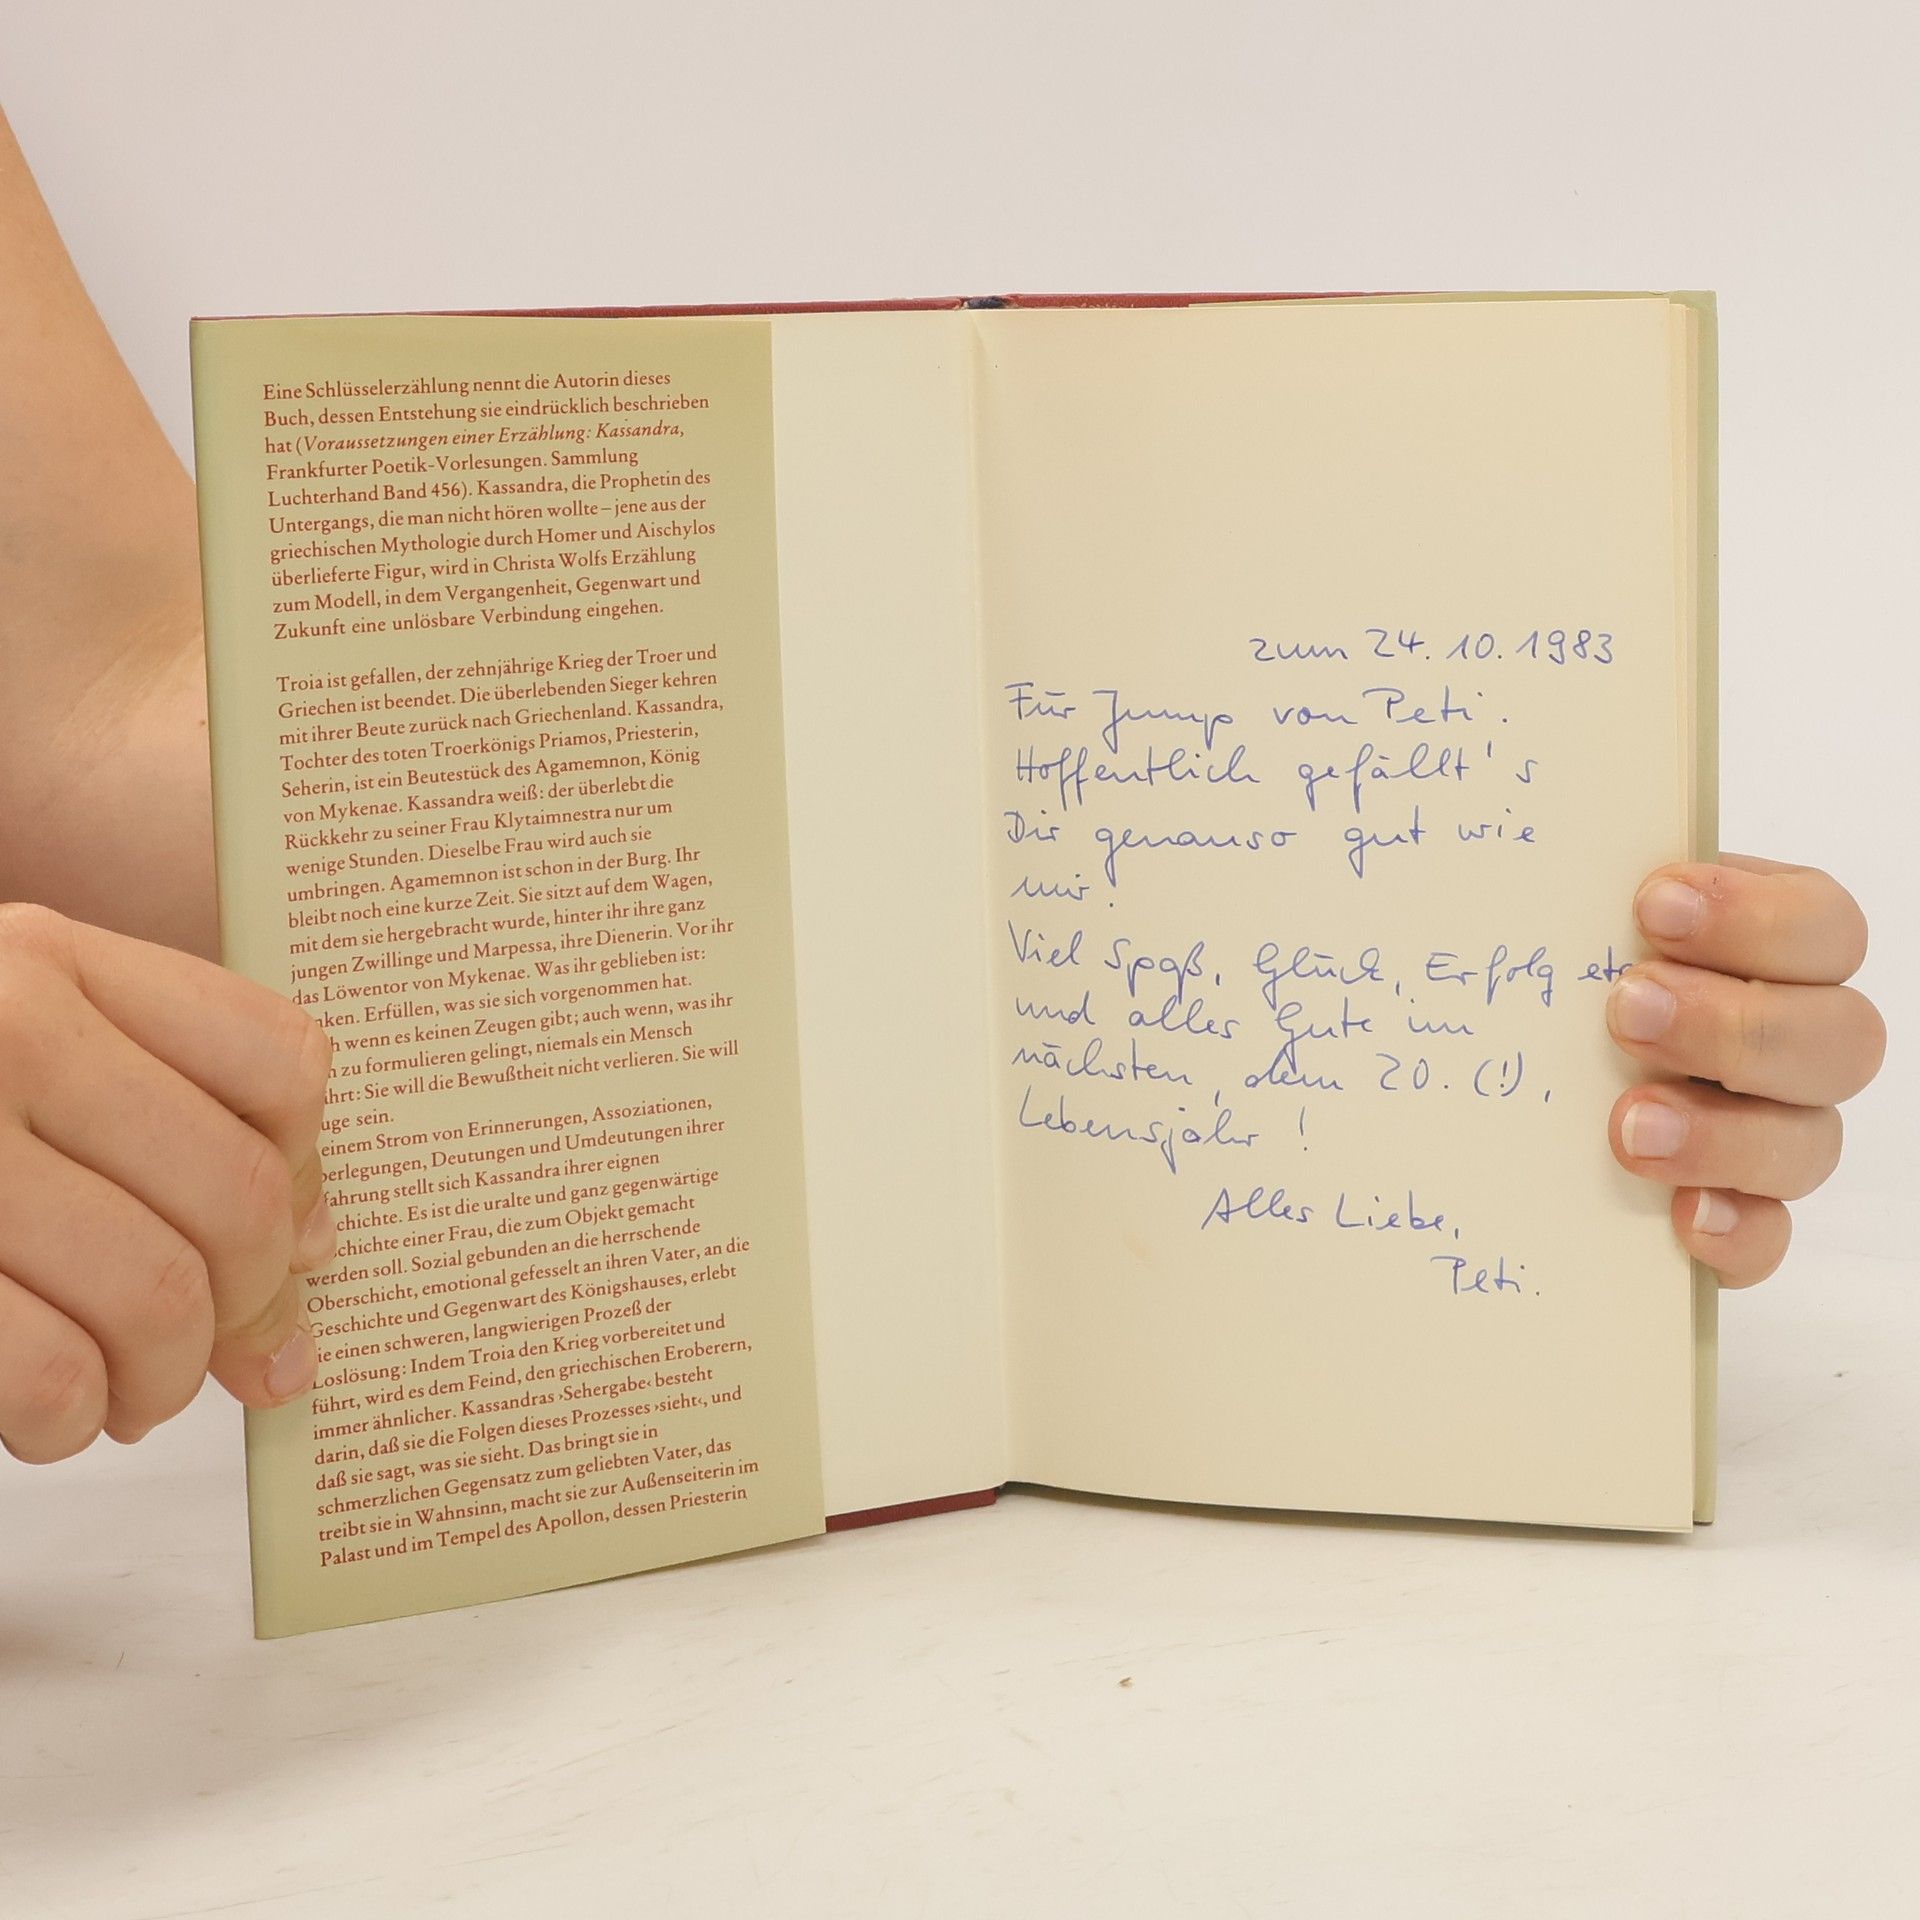 Eine Schlüsselerzählung nennt die Autorin dieses
Buch, dessen Entstehung sie eindrücklich beschrieben
hat (Voraussetzungen einer Erzählung: Kassandra,
Frankfurter Poetik-Vorlesungen. Sammlung
Luchterhand Band 456). Kassandra, die Prophetin des
Untergangs, die man nicht hören wollte – jene aus der
griechischen Mythologie durch Homer und Aischylos
überlieferte Figur, wird in Christa Wolfs Erzählung
zum Modell, in dem Vergangenheit, Gegenwart und
Zukunft eine unlösbare Verbindung eingehen.
Troia ist gefallen, der zehnjährige Krieg der Troer und
Griechen ist beendet. Die überlebenden Sieger kehren
mit ihrer Beute zurück nach Griechenland. Kassandra,
Tochter des toten Troerkönigs Priamos, Priesterin,
Seherin, ist ein Beutestück des Agamemnon, König
von Mykenae. Kassandra weiß: der überlebt die
Rückkehr zu seiner Frau Klytaimnestra nur um
wenige Stunden. Dieselbe Frau wird auch sie
umbringen. Agamemnon ist schon in der Burg. Ihr
bleibt noch eine kurze Zeit. Sie sitzt auf dem Wagen,
mit dem sie hergebracht wurde, hinter ihr ihre ganz
jungen Zwillinge und Marpessa, ihre Dienerin. Vor ihr
das Löwentor von Mykenae. Was ihr geblieben ist:
nken. Erfüllen, was sie sich vorgenommen hat.
h wenn es keinen Zeugen gibt; auch wenn, was ihr
n zu formulieren gelingt, niemals ein Mensch
ährt: Sie will die Bewußtheit nicht verlieren. Sie will
uge sein.
einem Strom von Erinnerungen, Assoziationen,
berlegungen, Deutungen und Umdeutungen ihrer
fahrung stellt sich Kassandra ihrer eignen
chichte. Es ist die uralte und ganz gegenwärtige
schichte einer Frau, die zum Objekt gemacht
werden soll. Sozial gebunden an die herrschende
Oberschicht, emotional gefesselt an ihren Vater, an die
Geschichte und Gegenwart des Königshauses, erlebt
ie einen schweren, langwierigen Prozeß der
Loslösung: Indem Troia den Krieg vorbereitet und
führt, wird es dem Feind, den griechischen Eroberern,
immer ähnlicher. Kassandras ›Sehergabe‹ besteht
darin, daß sie die Folgen dieses Prozesses ›sieht‹, und
daß sie sagt, was sie sieht. Das bringt sie in
schmerzlichen Gegensatz zum geliebten Vater, das
treibt sie in Wahnsinn, macht sie zur Außenseiterin im
Palast und im Tempel des Apollon, dessen Priesterin
zum 24. 10. 1983
Für Jump von Peti.
Hoffentlich gefällt's
Dir genauso gut wie
mir!
Viel Spaß, Glück, Erfolg etc
und alles Gute im
nächsten, dem 20. (!),
Lebensjahr!
Alles Liebe,
Peti.